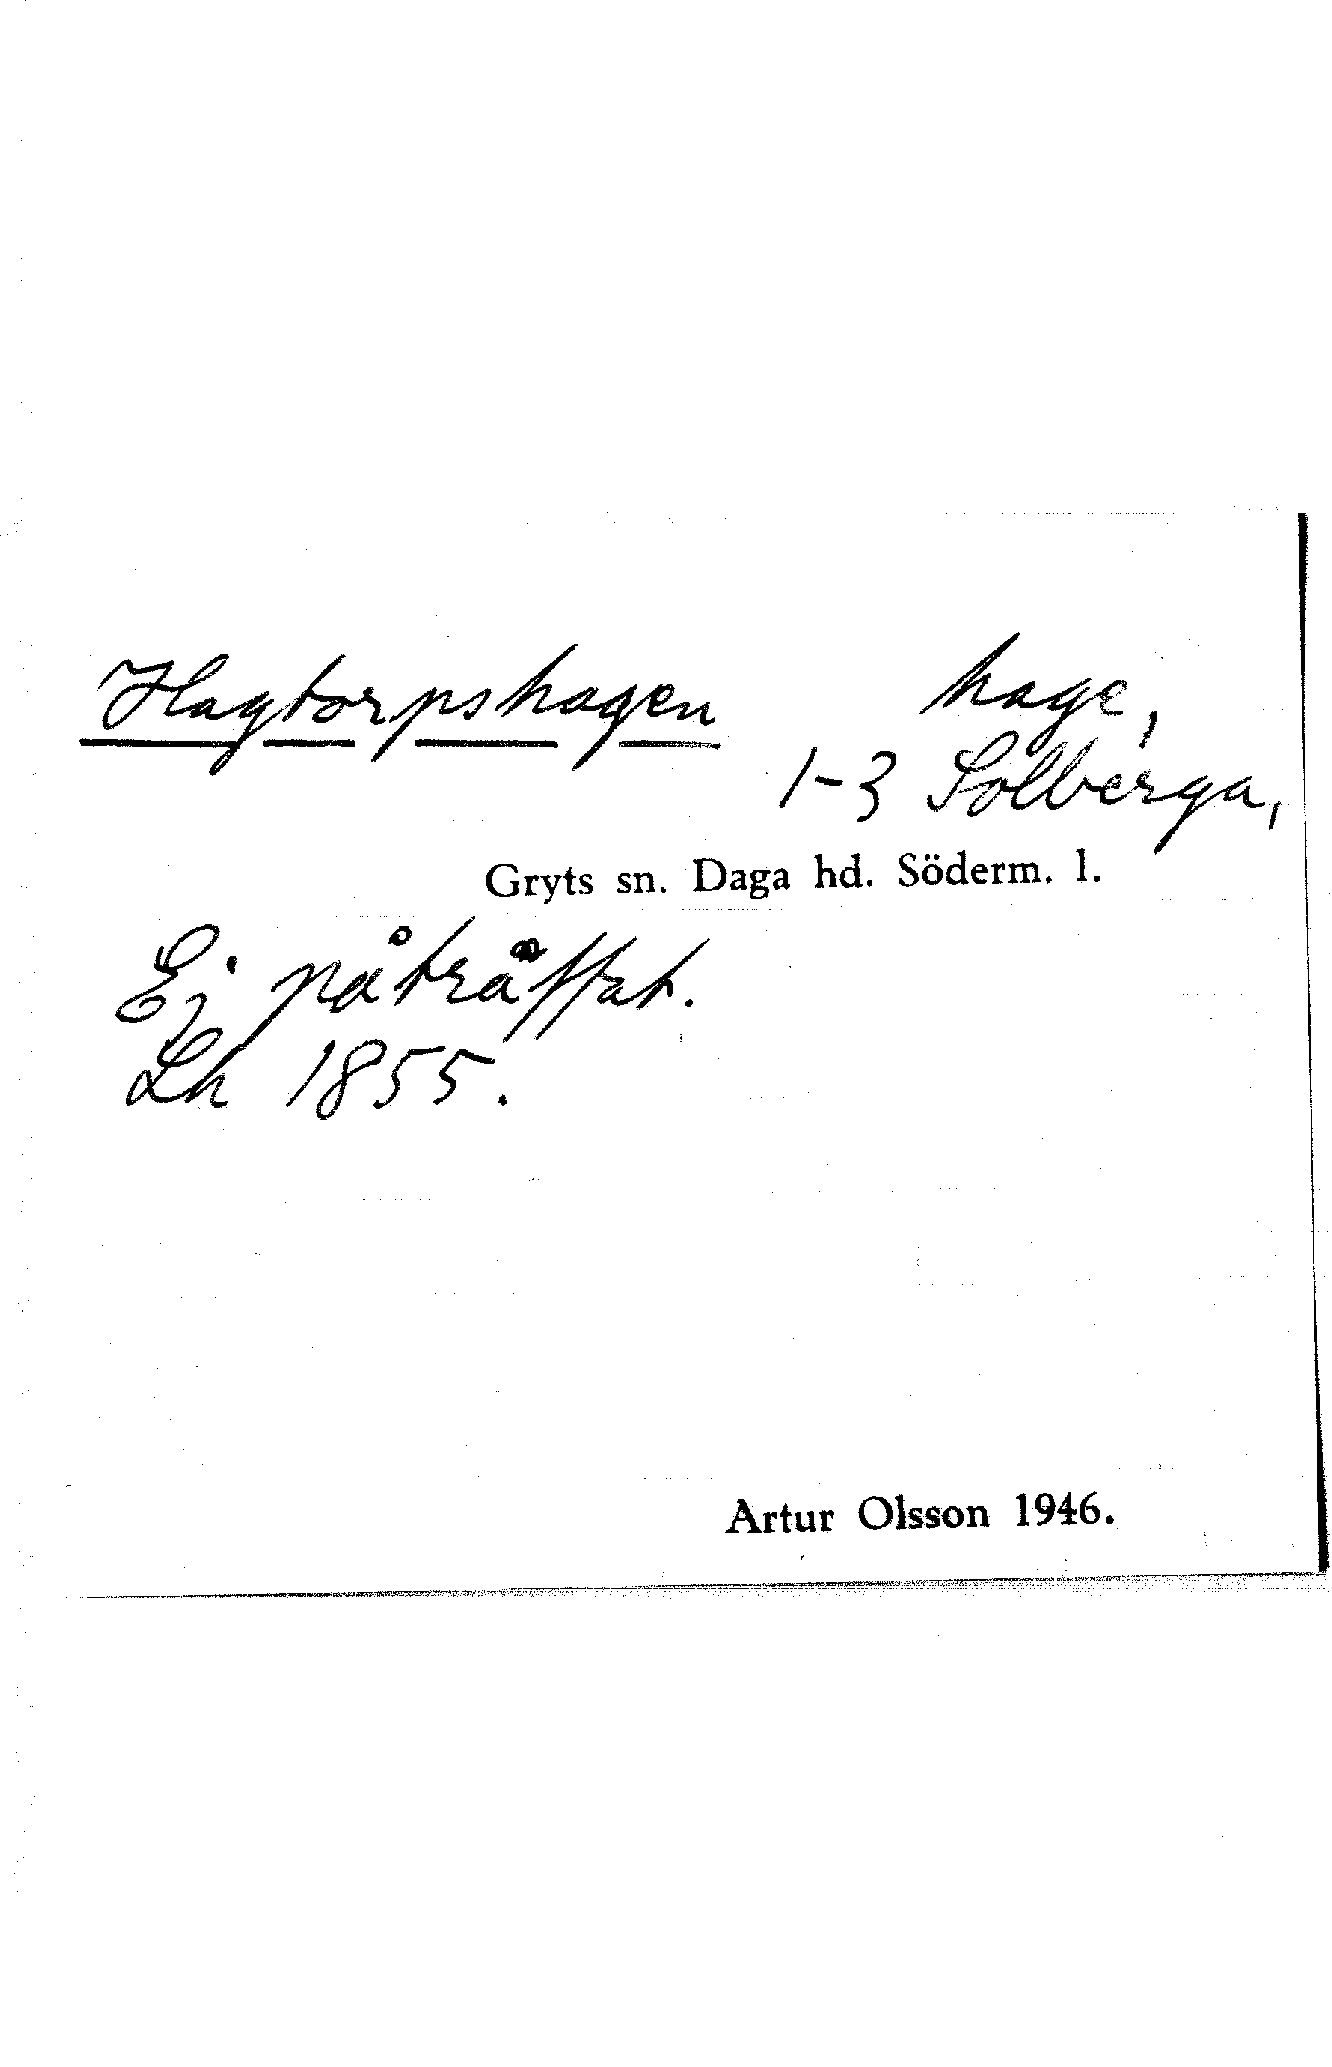 Hagtorpshagen hage,
1-3 Solberga,
Gryts sn. Daga hd. Söderm. l.
Ej påträffat.
Lh 1855.
Artur Olsson 1946.